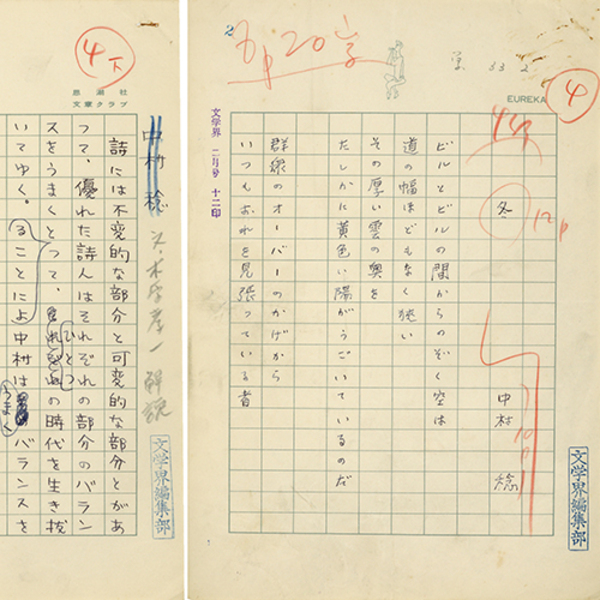 2
6p20字
文 33 2
④
EUREKA
44行
12p
冬
中村 稔
ビルとビルの間からのぞく空は
道の幅ほどもなく狭い
その厚い雲の奥を
たしかに黄色い陽がうごいているのだ
群衆のオーバーのかげから
いつもおれを見張っている者
文学界 二月号 十二印
文学界編集部
④下
思潮社
文章クラブ
中村 稔
解説
詩には不変的な部分と可変的な部分とがあ
って、優れた詩人はそれぞれの部分のバラン
スをうまくとって、ひとつの時代を生き抜
いてゆく。ることによ中村は うまく バランスを
文学界編集部